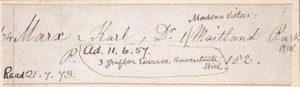 Modena Villas
/74 Marx Karl, Dr. 1 Maitland Park
N.W.
P. Ad. 11.6.57.
3 Grafton Terrace, Haverstock Hill 182.
Read 21.7.73.